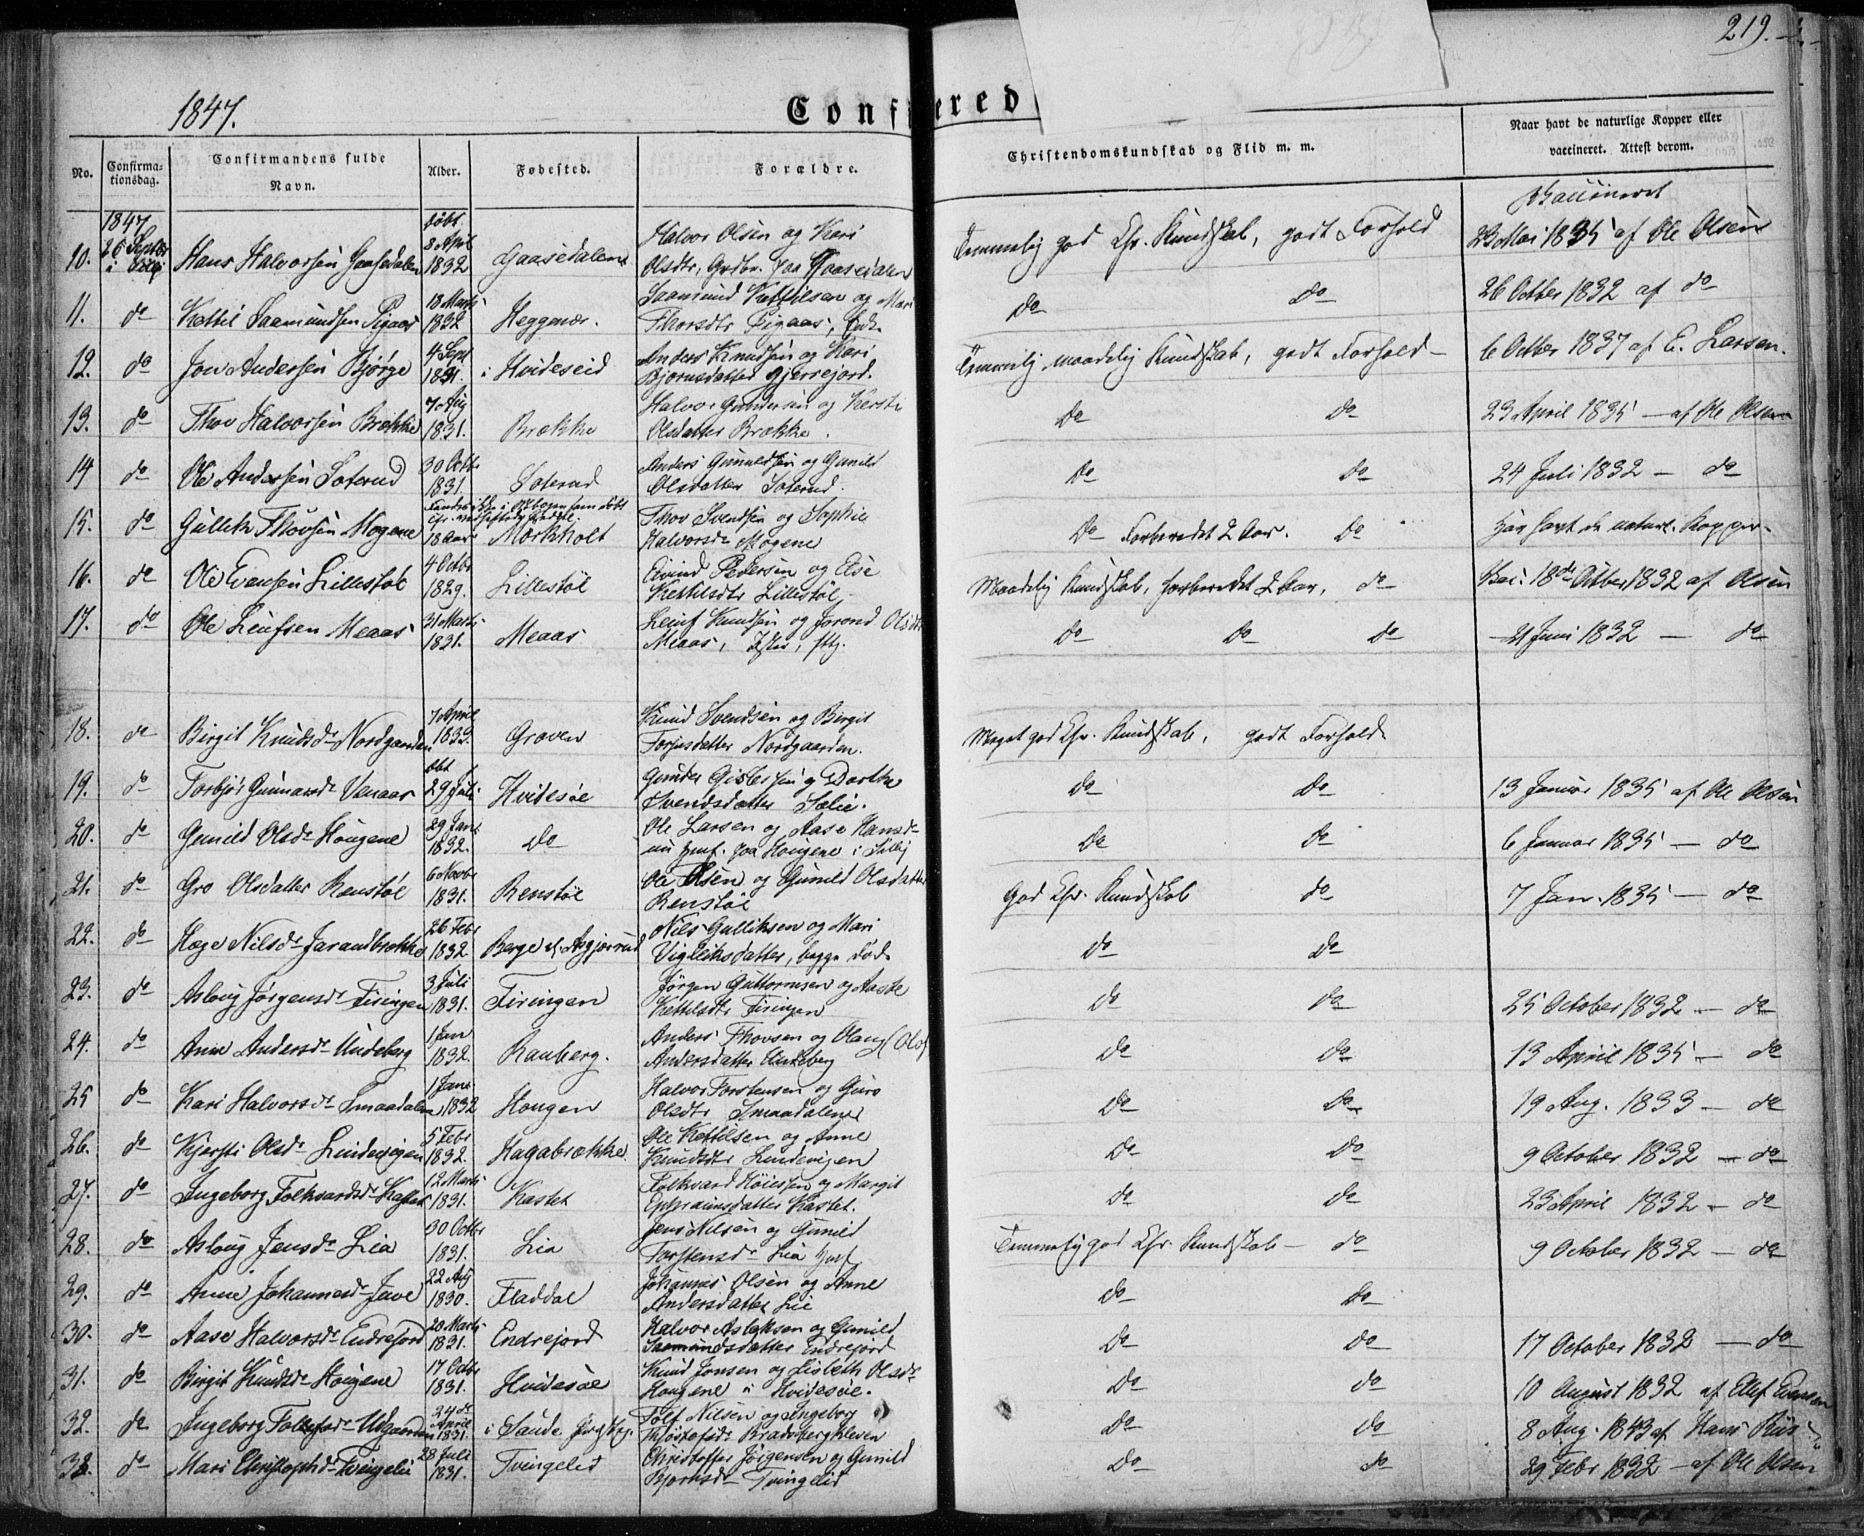 219.
1847.
Confi
ered
No.
Confirma-
tionsdag.
Confirmandens fulde
Navn.
Alder.
Fødested.
Forældre.
Christendomskundskab og Flid m. m.
Naar havt de naturlige Kopper eller
vaccineret. Attest derom.
1847
født
Vaccineret
10. 26 Septbr Hans Halvorsen Gaasedalen 8 April 1832 Gaasedalen Halvor Olsen og Kari
Olsdtr, Grdbr. paa Gaasedalen Temmelig god Chr. Kundskab, godt Forhold 23 Mai 1835 af Ole Olsen
11. do Kettil Saamundsen Pigaas 18 Marts 1832 Heggenæs. Saamund Kettilsen og Mari
Thorsdtr Pigaas, do do 26 Octber 1832 af do
12. do Jon Andersen Bjørge 4 Sept 1831. i Hvideseid Anders Knudsen og Kari
Bjørnsdatter Gjerrejord. Temmelig maadelig Kundskab, godt Forhold 6 Octber 1837 af E. Larsen.
13. do Thov Halvorsen Brække 7 Aug 1831. Brække Halvor Gundersen og Kersti
Olsdatter Brække. do do 23 April 1835 af Ole Olsen
14 do Ole Andersen Soterud 30 Octb 1831. Soterud Anders Gunuldsen og Gunild
Olsdatter Soterud. do do 24 Juli 1832 do
15. do Gullik Thovsen Mogene 18 Aar Morkholt Thov Svendsen og Sophie
Halvorsdr Mogene do Forberedet 2 Aar. do Har havt de naturl. Kopper.
16. do Ole Evensen Lillestøl 4 Octbr 1829. Lillestøl Eivind Pedersen og Else
Kettilsdtr Lillestøl Maadelig Kundskab, forberedet 2 Aar, do Vac. 18de Octber 1832 af Olsen
17. do Ole Leufsen Meaas 31 Marts 1831. Meaas Leuf Knudsen og Jorond Olsdtr
Meaas, do do do 21 Juni 1832 do
18. do Birgit Knudsdr Nordgaarden 7 April 1832. Groven Knud Svendsen og Bergit
Torjusdatter Nordgaarden. Meget god Chr. Kundskab, godt Forhold
19. do Torbjør Gunnarsdr Vanaas 29 Juli Hvidesøe Gunder Gislesen og Dorthe
Svendsdatter Lølie. do do 13 Januar 1835 af Ole Olsen
20. do Gunild Olsdr Hougene 29 Jan 1832. do Ole Larsen og Aase Hansdr
paa Hougene i do do 6 Januar 1835 do
21. do Gro Olsdatter Renstøl 6 Novbr 1831. Renstøl Ole Olsen og Gunild Olsdatter
Renstøl God Chr. Kundskab do 7 Jan. 1835 do
22. do Hæge Nilsdr Jarandbrække 26 Febr 1832 Berge Asgjerrud Nils Gulliksen og Mari
Vigleiksdatter, begge døde do do
23. do Asloug Jørgensdr Firingen 3 Juli 1831. Firingen Jørgen Guttormsen og Aaste
Kettilsdtr Firingen do do 25 October 1832 do
24. do Anne Andersdr Undeberg 1 Jan 1832. Rauberg. Anders Thovsen og Olaug (Olof)
Andersdatter Undeberg do do 13 April 1835 do
25 do Kari Halvorsdr Smaadalene 1 Jan 1832 Hougen Halvor Torstensen og Guro
Olsdtr Smaadalene do do 19 Aug. 1833 do
26. do Kjersti Olsdr Lindevigen 5 Febr 1832. Hagabrække Ole Kettilsen og Anne
Knudsdtr Lindevigen do do 9 October 1832 do
27. do Ingeborg Folkvardsdr Kastet 12 Marts 1831. Kastet Folkvard Høiesen og Margit
Ephraimsdatter Kastet. do do 23 April 1832 do
28. do Aslaug Jensdr Lia 30 Octbr 1831. Lia Jens Nilsen og Gunild
Torstensdr Lia Temmelig god Chr. Kundskab do 9 October 1832 do
29. do Anne Johannesdr Juve 22 Aug 1830. Fladdal Johannes Olsen og Anne
Andersdatter Lie do do
30. do Aase Halvorsdr Endrejord 20 Marts 1831. Endrejord Halvor Aslaksen og Gunild
Saamundsdatter Endrejord do do 17 October 1832 do
31. do Birgit Knudsdr Hougene 17 Octbr 1831. Hvidesøe Knud Jonsen og Lisbeth Olsdr
Hougene i Hvidesøe. do do 10 August 1832 af Ellef Evensen
32. do Ingeborg Tolfsdr Udgaarden 24de April 1831. i Saude Tolf Nilsen og Ingeborg
Thostofsdr Bradsbergkleven do do 8 Aug. 1843 af Hans Riis
33. do Mari Christophsdr Tvingelid 28 Juli 1831. Tvingelid Christoffer Jørgensen og Gunild
Bjørnsdr Tvingelid do do 29 Febr 1832 af Ole Olsen